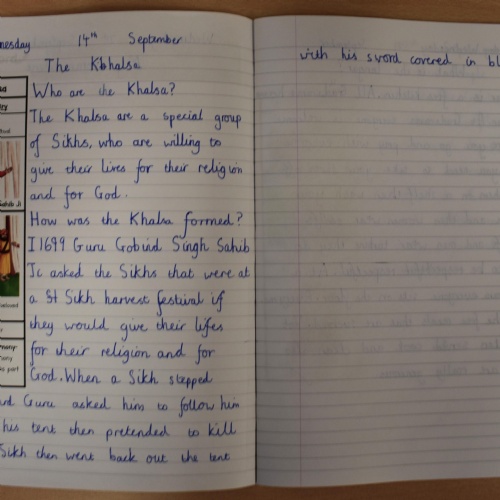 nesday 14th September
The Kbhalsa
Who are the Khalsa?
The Khalsa are a special group
of Sikhs, who are willing to
give their lives for their religion
and for God.
How was the Khalsa formed?
I 1699 Guru Gobind Singh Sahib
Ji asked the Sikhs that were at
a St Sikh harvest festival if
they would give their lifes
for their religion and for
God. When a Sikh stepped
Guru asked him to follow him
his tent then pretended to kill
Sikh then went back out the tent
with his sword covered in bl
Sahib Ji